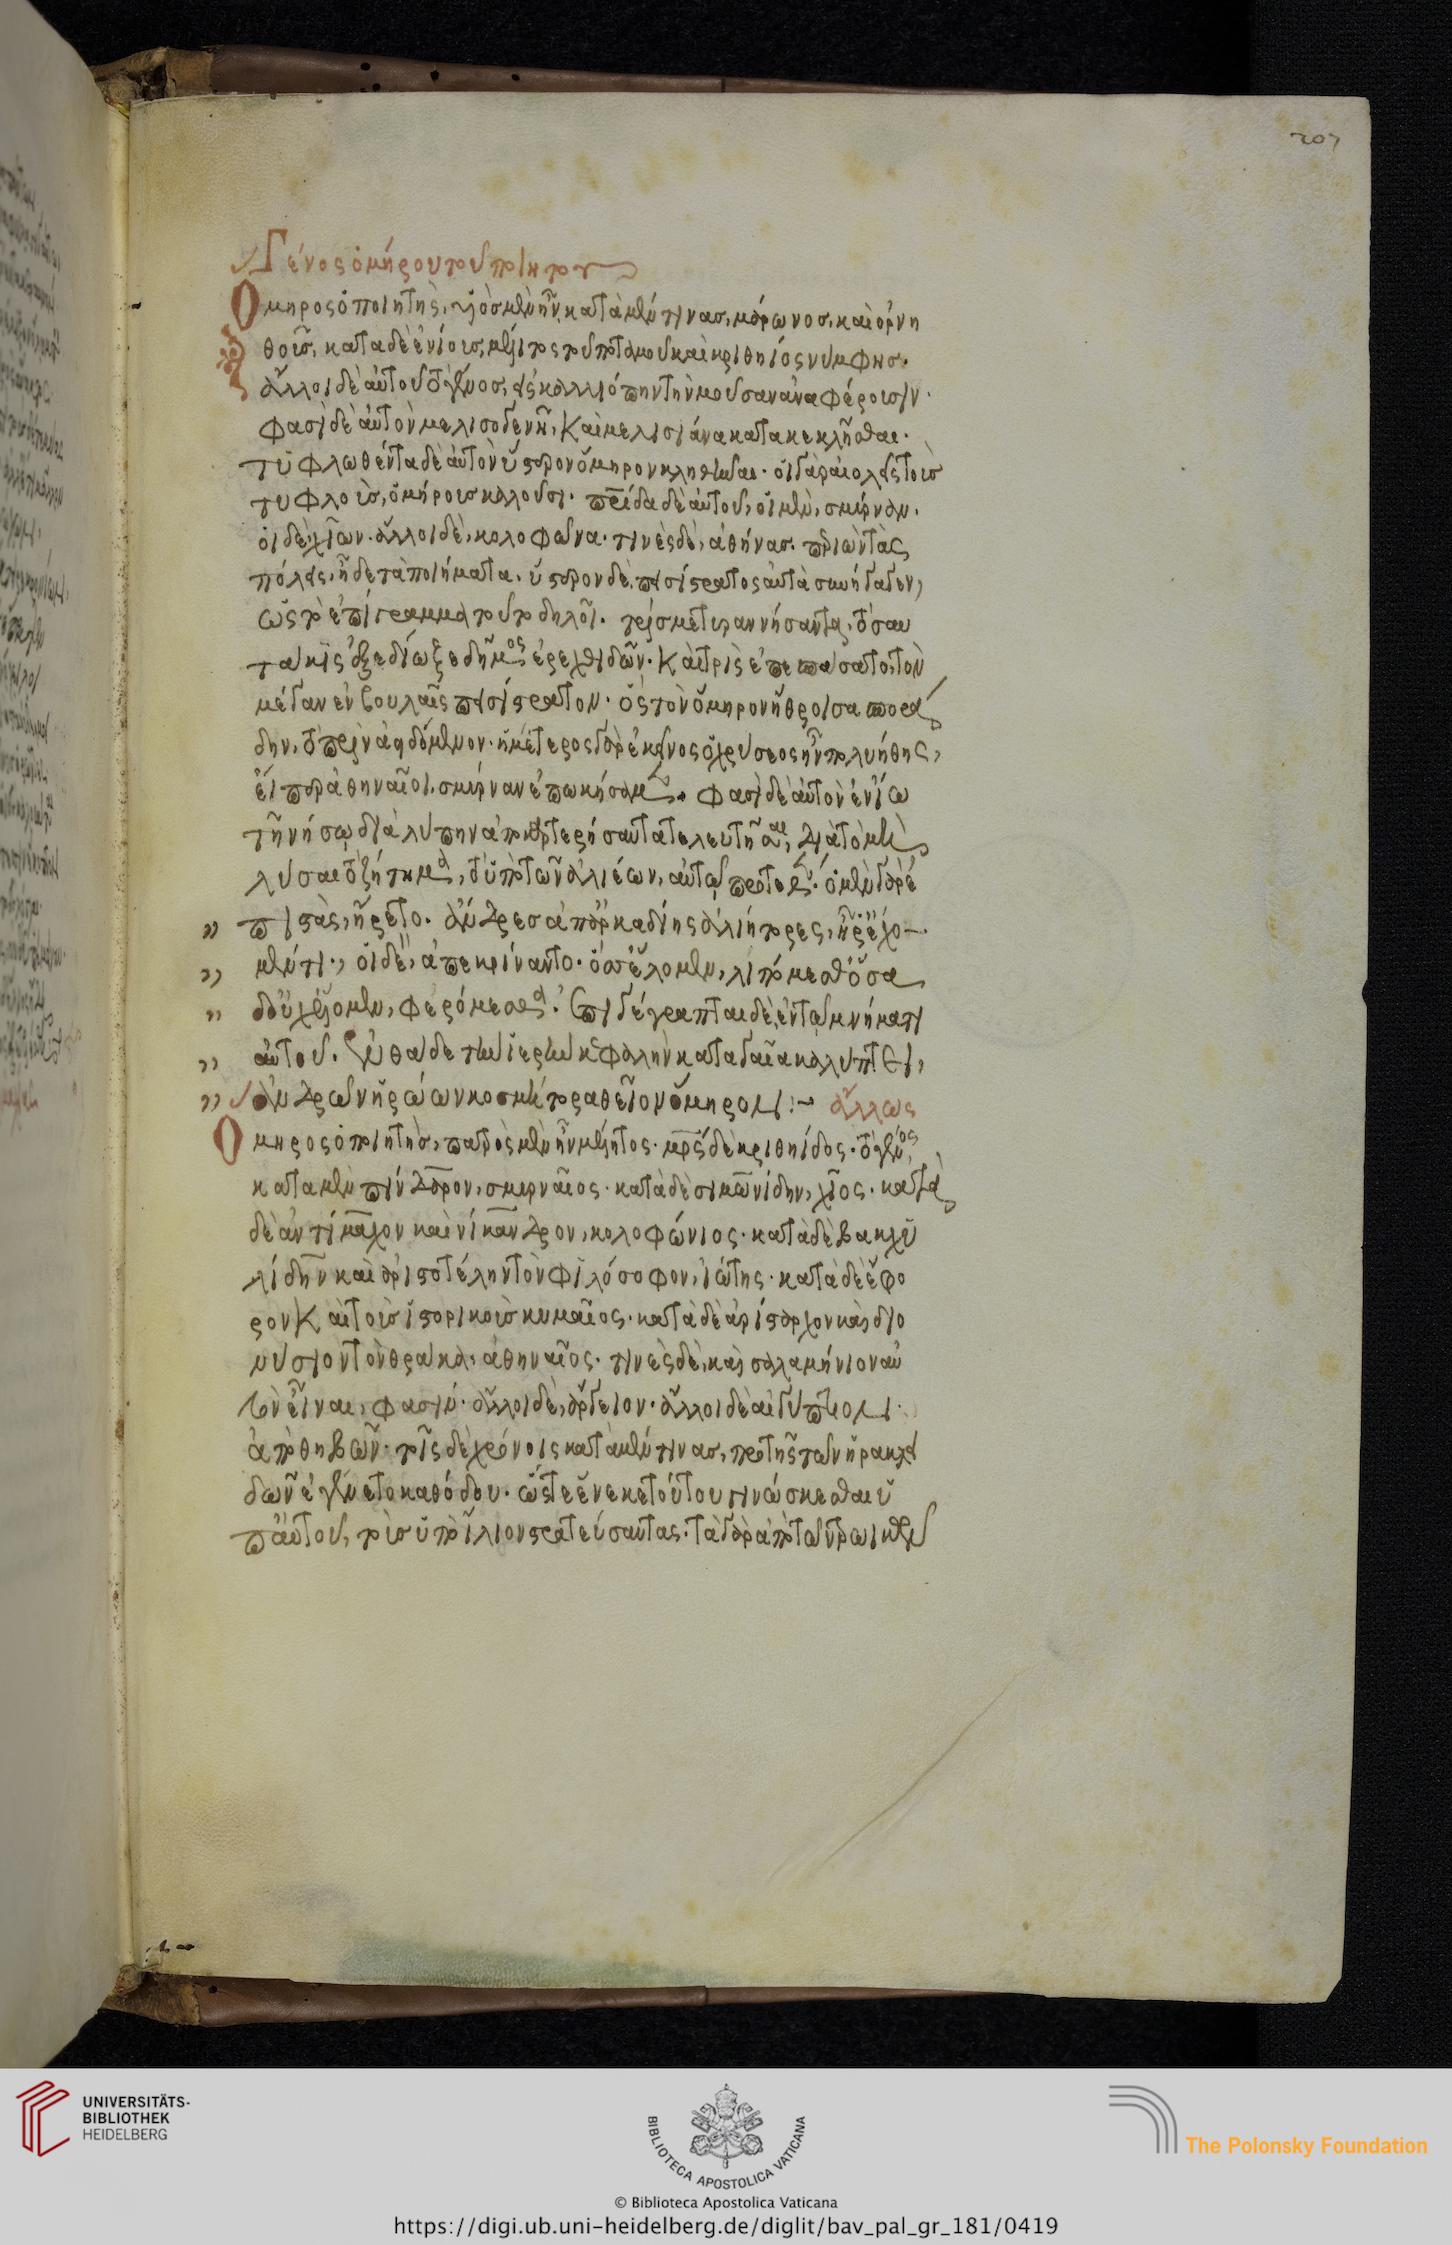 207
Γένος ὁμήρου τοῦ ποιητοῦ
Ὅμηρος ὁ ποιητὴς, υἱὸς μὲν ἦν, κατὰ μέν τινας, μαίωνος, καὶ ὀρνη
θοῦς, κατα δὲ ἐνίους, μέλητος τοῦ ποταμοῦ καὶ κριθηίδος νύμφης.
ἄλλοι δὲ αὐτοῦ τὸ γένος, εἰς καλλιόπην τὴν μοῦσαν ἀναφέρουσιν.
φασὶ δὲ αὐτὸν μελισογενῆ, καὶ μελισιάνακα κεκλῆσθαι.
τυφλωθέντα δὲ αὐτὸν ὕστερον ὅμηρον κληθῆναι. οἱ γὰρ αἰολεῖς τοὺς
τυφλοὺς, ὁμήρους καλοῦσι. πατρίδα δὲ αὐτοῦ, οἱ μὲν, σμύρναν.
οἱ δὲ χῖον. ἄλλοι δὲ, κολοφῶνα. τινὲς δὲ, ἀθήνας. περιιὼν τὰς
πόλεις, ἦδε τὰ ποιήματα. ὕστερον δὲ πεισίστρατος αὐτὰ συνήγαγεν,
ὡς τὸ ἐπίγραμμα τοῦτο δηλοῖ. τρίς με τυραννήσαντα, τοσαυ
τάκις ἐξεδίωξε δῆμος ἐρεχθειδῶν. καὶ τρὶς ἐπεσπάσατο, τὸν
μέγαν ἐν βουλαῖς πεισίστρατον. ὃς τὸν ὅμηρον ἤθροισα σπορά
δην, τὸ πρὶν ἀειδόμενον. ἡμέτερος γὰρ ἐκεῖνος ὁ χρύσεος ἦν πολιήτης,
εἴπερ ἀθηναῖοι, σμύρναν ἐπωκήσαμεν. φασὶ δὲ αὐτὸν ἐν ἴω
τῆ νήσω διὰ λύπην ἀποκαρτερήσαντα τελευτῆσαι, διὰ τὸ μὴ
λῦσαι τὸ ζήτημα, τὸ ὑπὸ τῶν ἁλιέων, αὐτῶ προτεθέν. ὁ μὲν γὰρ ἐ
πιστὰς, ἤρετο. ἄνδρες ἀπ' ἀρκαδίης ἁλιήτορες, ἦ ῥ' ἔχο
μέν τι, οἱ δὲ, ἀπεκρίναντο. ὅσσ' ἕλομεν, λιπόμεσθ' ὅσα
δ' οὐχ ἕλομεν, φερόμεσθα. ἐπιγέγραπται δὲ, ἐν τῶ μνήματι
αὐτοῦ. ἐνθάδε τὴν ἱερὴν κεφαλὴν κατὰ γαῖα καλύπτει,
ἀνδρῶν ἡρώων κοσμήτορα θεῖον ὅμηρον: ἄλλως
Ὅμηρος ὁ ποιητὴς, πατρὸς μὲν ἦν μέλητος. μητρὸς δὲ κριθηίδος. τὸ γένος,
κατα μὲν πίνδαρον, σμυρναῖος. κατὰ δὲ σιμωνίδην, χῖος. κατὰ
δὲ ἀντίμαχον καὶ νίκανδρον, κολοφώνιος. κατὰ δὲ βακχυ
λίδην καὶ ἀριστοτέλην τὸν φιλόσοφον, ἰώτης. κατὰ δὲ ἔφο
ρον καὶ τοὺς ἱστορικοὺς κυμαῖος. κατὰ δὲ ἀρίσταρχον καὶ διο
νύσιον τὸν θρᾶκα, ἀθηναῖος. τινὲς δὲ, καὶ σαλαμήνιον αὐ
τὸν εἶναι, φασίν. ἄλλοι δὲ, ἀργεῖον. ἄλλοι δὲ αἰγύπτιον
ἀπὸ θηβῶν. τοῖς δὲ χρόνοις κατὰ μέν τινας, πρὸ τῆς τῶν ἡρακλει
δῶν ἐγένετο καθόδου. ὥστε ἕνεκε τούτου γινώσκεσθαι ὑ
π' αὐτοῦ, τοὺς ὑπὸ ἴλιον στρατεύσαντας. τὰ γὰρ ἀπὸ τῶν τρωικῶν
UNIVERSITÄTS-
BIBLIOTHEK
HEIDELBERG
BIBLIOTECA APOSTOLICA VATICANA
The Polonsky Foundation
© Biblioteca Apostolica Vaticana
https://digi.ub.uni-heidelberg.de/diglit/bav_pal_gr_181/0419